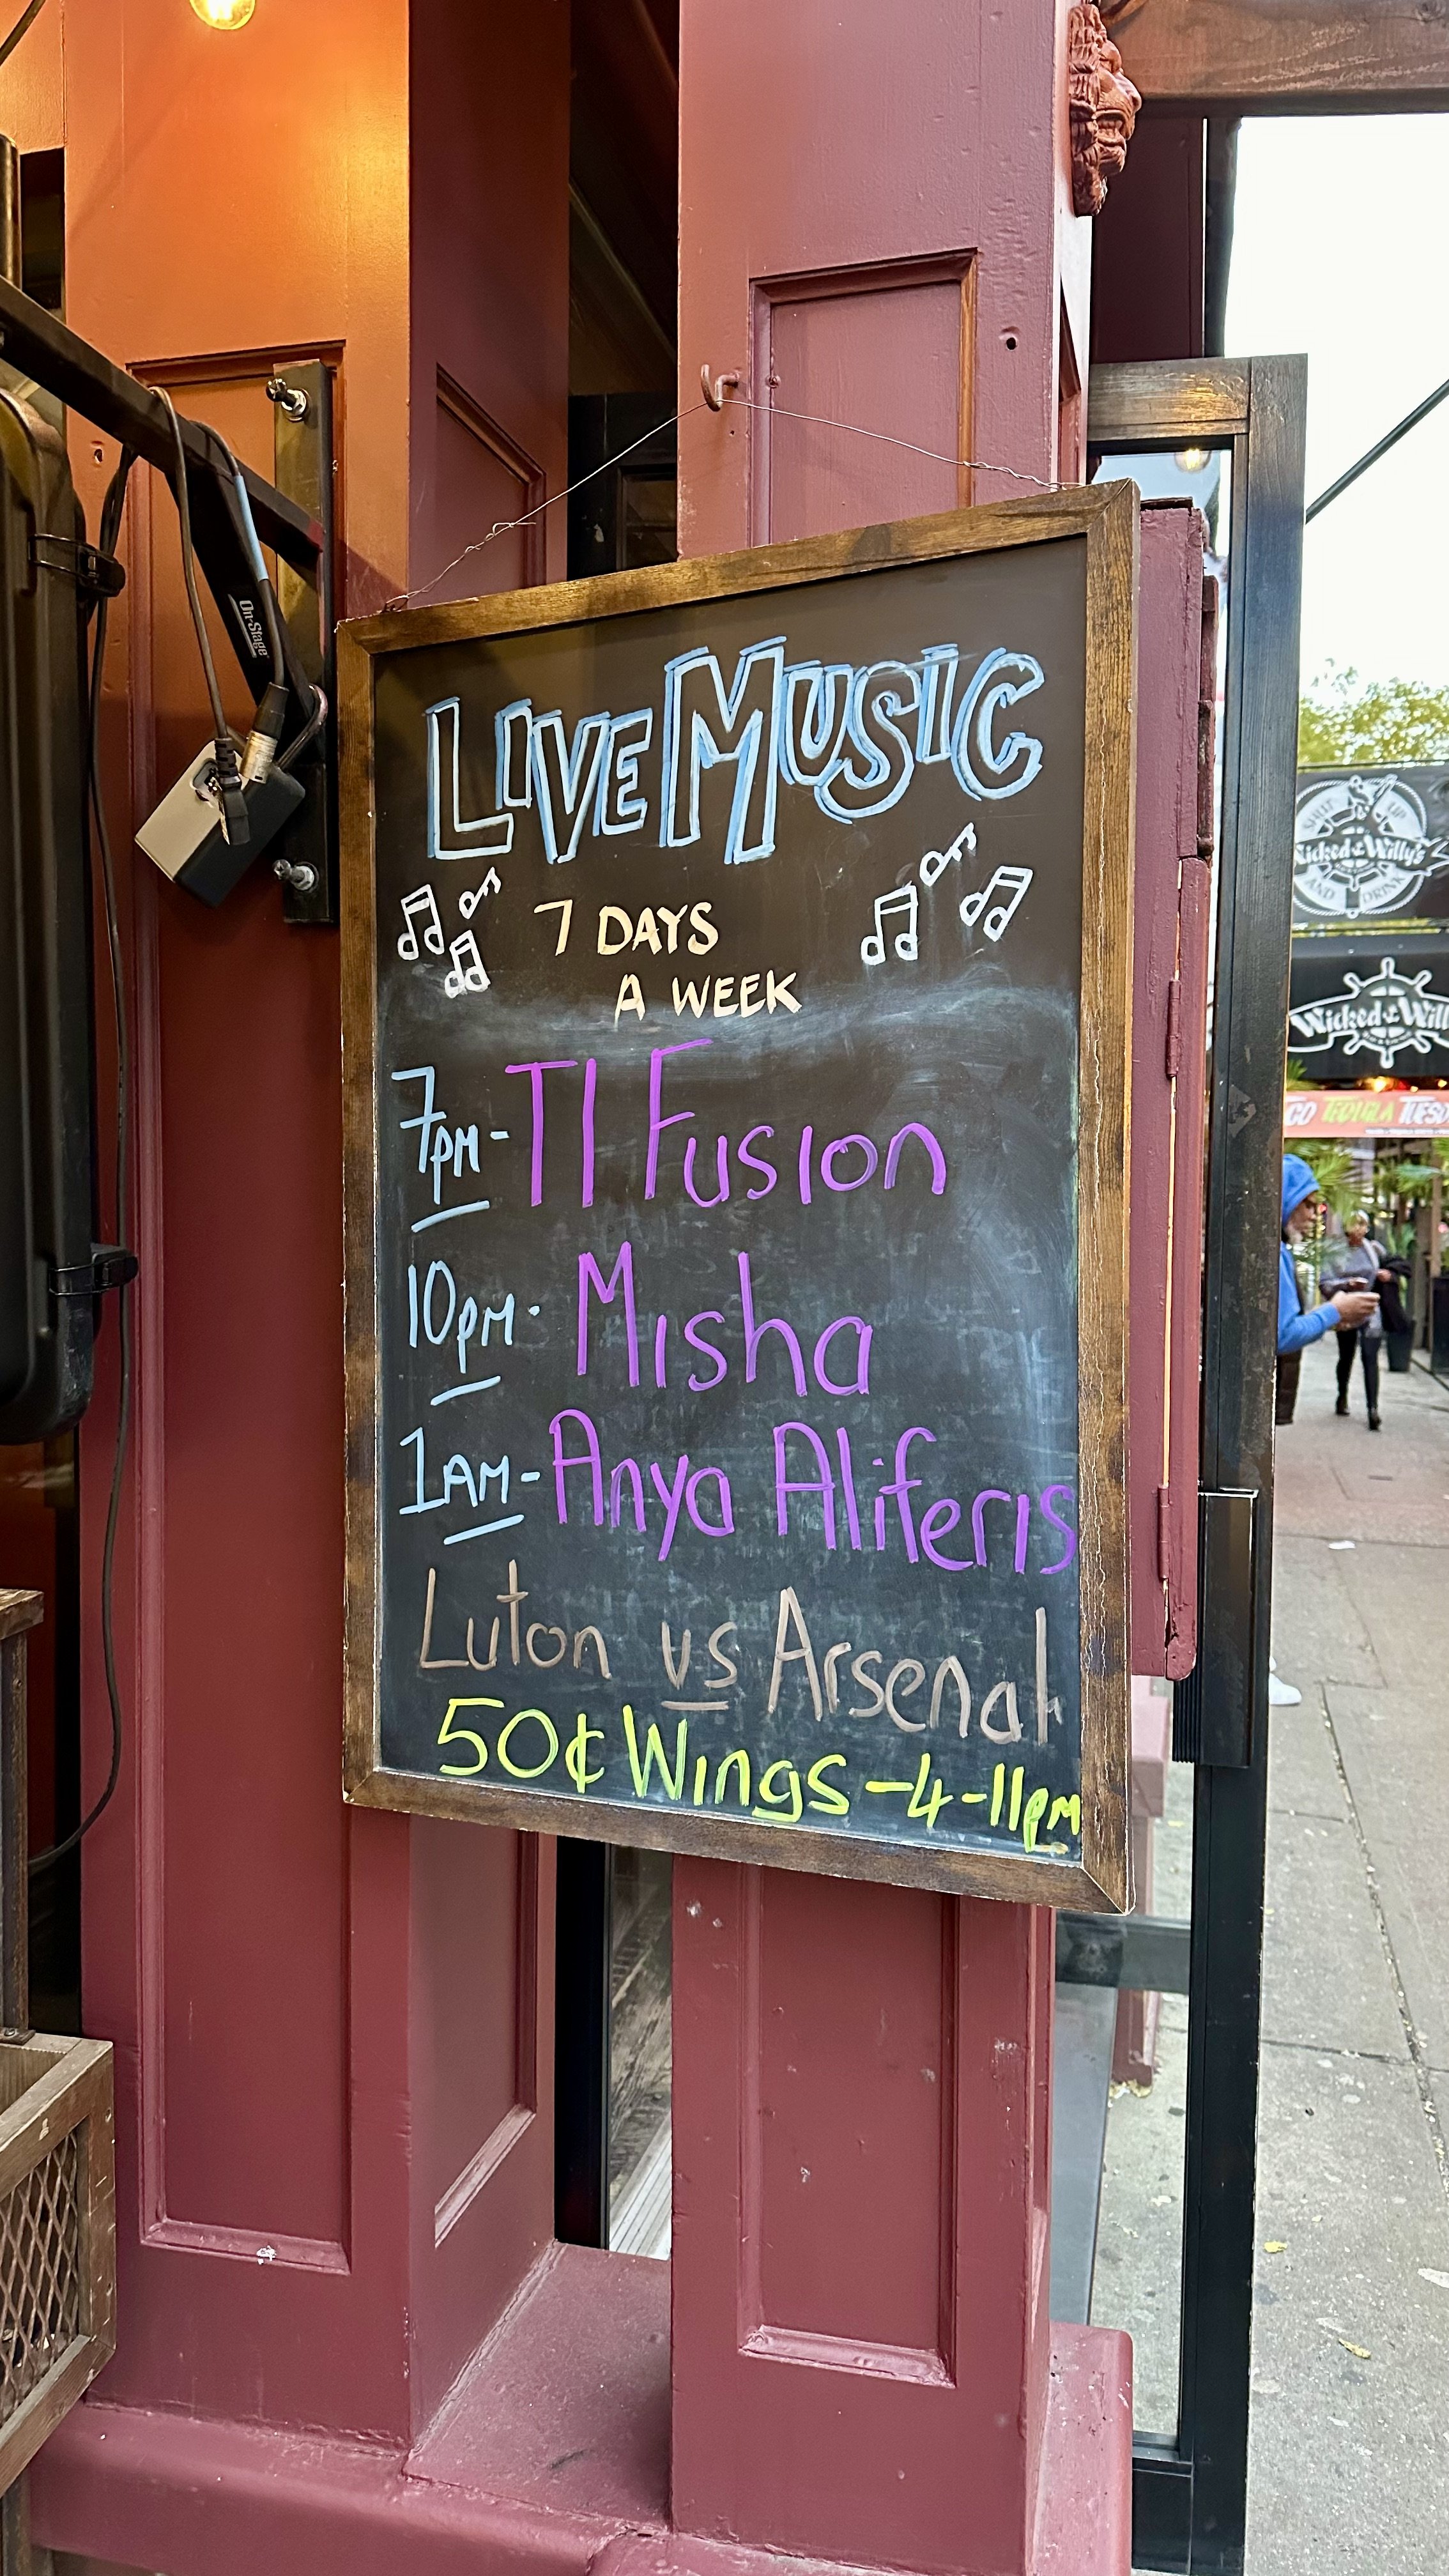 LIVE MUSIC
7 DAYS
A WEEK
7PM - TI Fusion
10PM - Misha
1AM - Anya Aliferis
Luton vs Arsenal
50¢ Wings - 4 - 11PM
On-Stage
AND DRINK
Wicked Willy's
TEQUILA